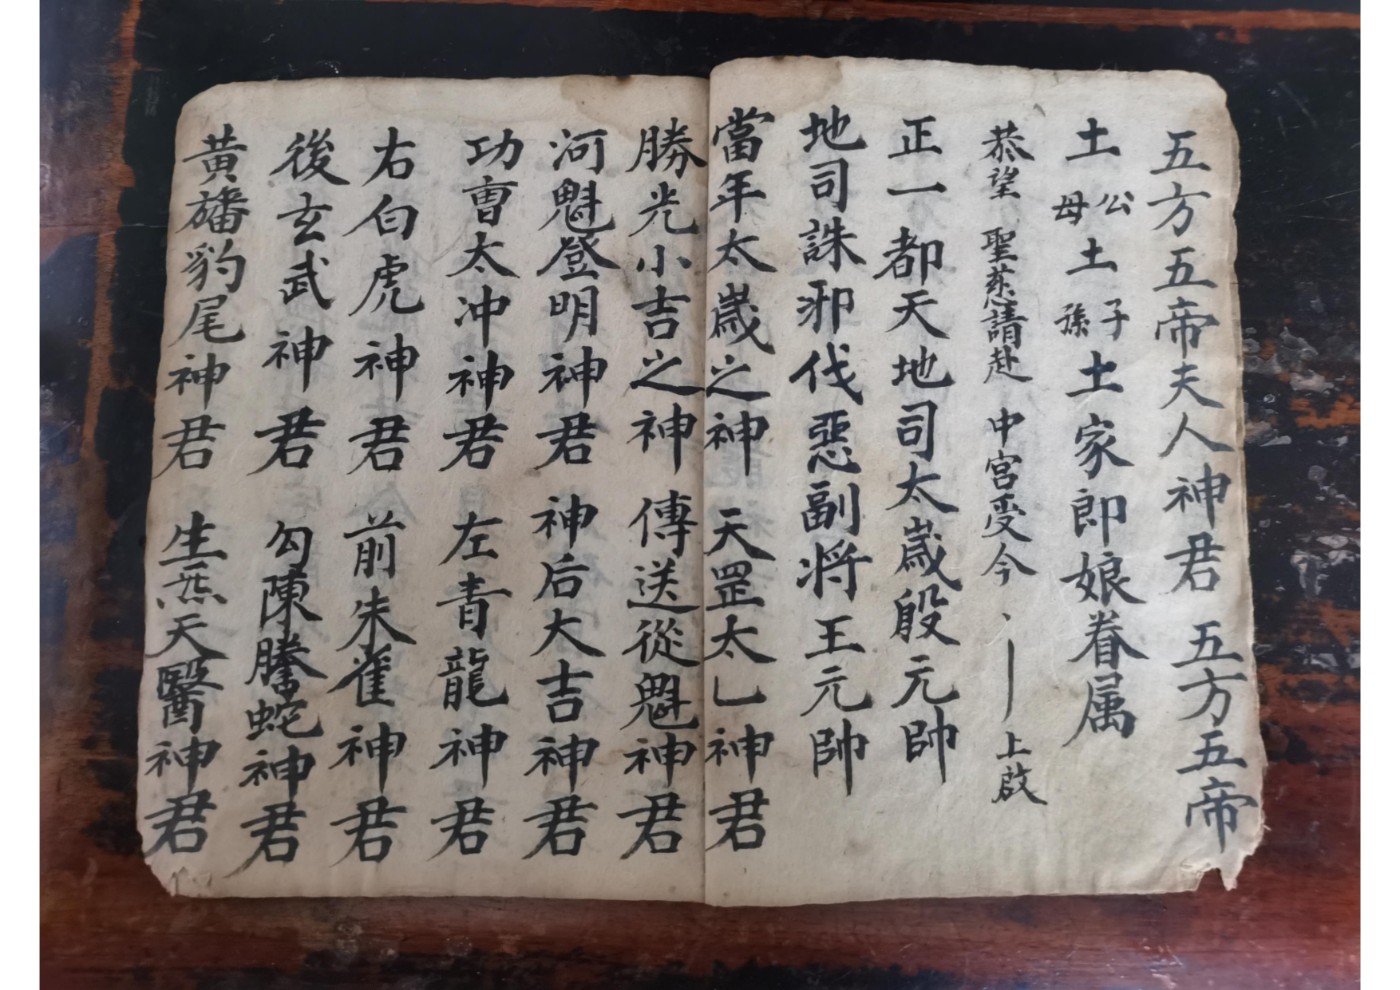 五方五帝夫人神君 五方五帝
土公母土子孫土家郎娘眷属
恭望 聖慈請赴 中宮受今、｜上啟
正一都天地司太歲殷元帥
地司誅邪伐惡副将王元帥
當年太歲之神 天罡太乚神君
勝光小吉之神 傳送從魁神君
河魁登明神君 神后大吉神君
功曹太冲神君 左青龍神君
右白虎神君 前朱雀神君
後玄武神君 勾陳騰蛇神君
黃旛豹尾神君 生炁天醫神君